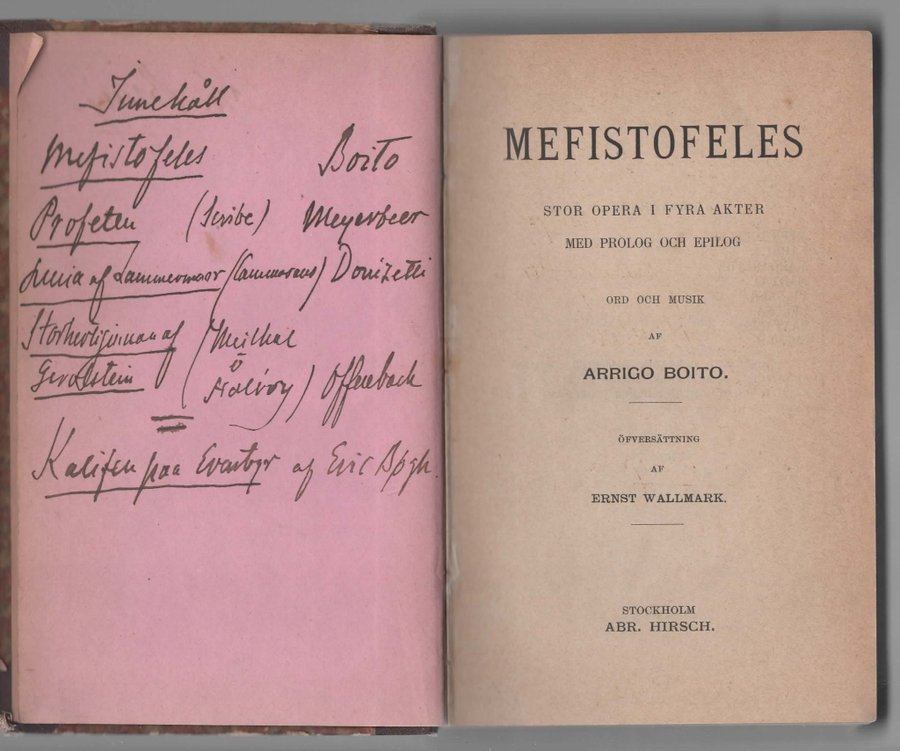 Innehåll
Mefistofeles Boito
Profeten (Scribe) Meyerbeer
Lucia af Lammermoor (Cammarano) Donizetti
Storhertiginnan af (Meilhac
Gerolstein ö Halévy) Offenbach
Kalifen paa Eventyr af Eric Bøgh.
MEFISTOFELES
STOR OPERA I FYRA AKTER
MED PROLOG OCH EPILOG
ORD OCH MUSIK
AF
ARRIGO BOITO.
ÖFVERSÄTTNING
AF
ERNST WALLMARK.
STOCKHOLM
ABR. HIRSCH.